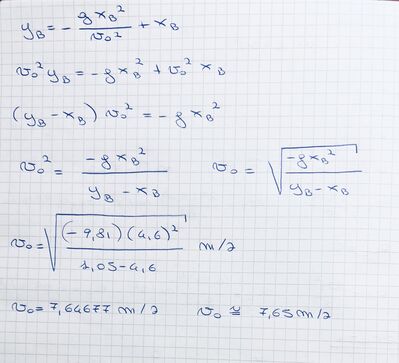 y_B = - g x_B² / v₀² + x_B
v₀² y_B = - g x_B² + v₀² x_B
(y_B - x_B) v₀² = - g x_B²
v₀² = - g x_B² / y_B - x_B    v₀ = √(- g x_B² / y_B - x_B)
v₀ = √((-9,81)(4,6)² / 1,05-4,6) m/s
v₀ = 7,64677 m/s    v₀ ≅ 7,65 m/s